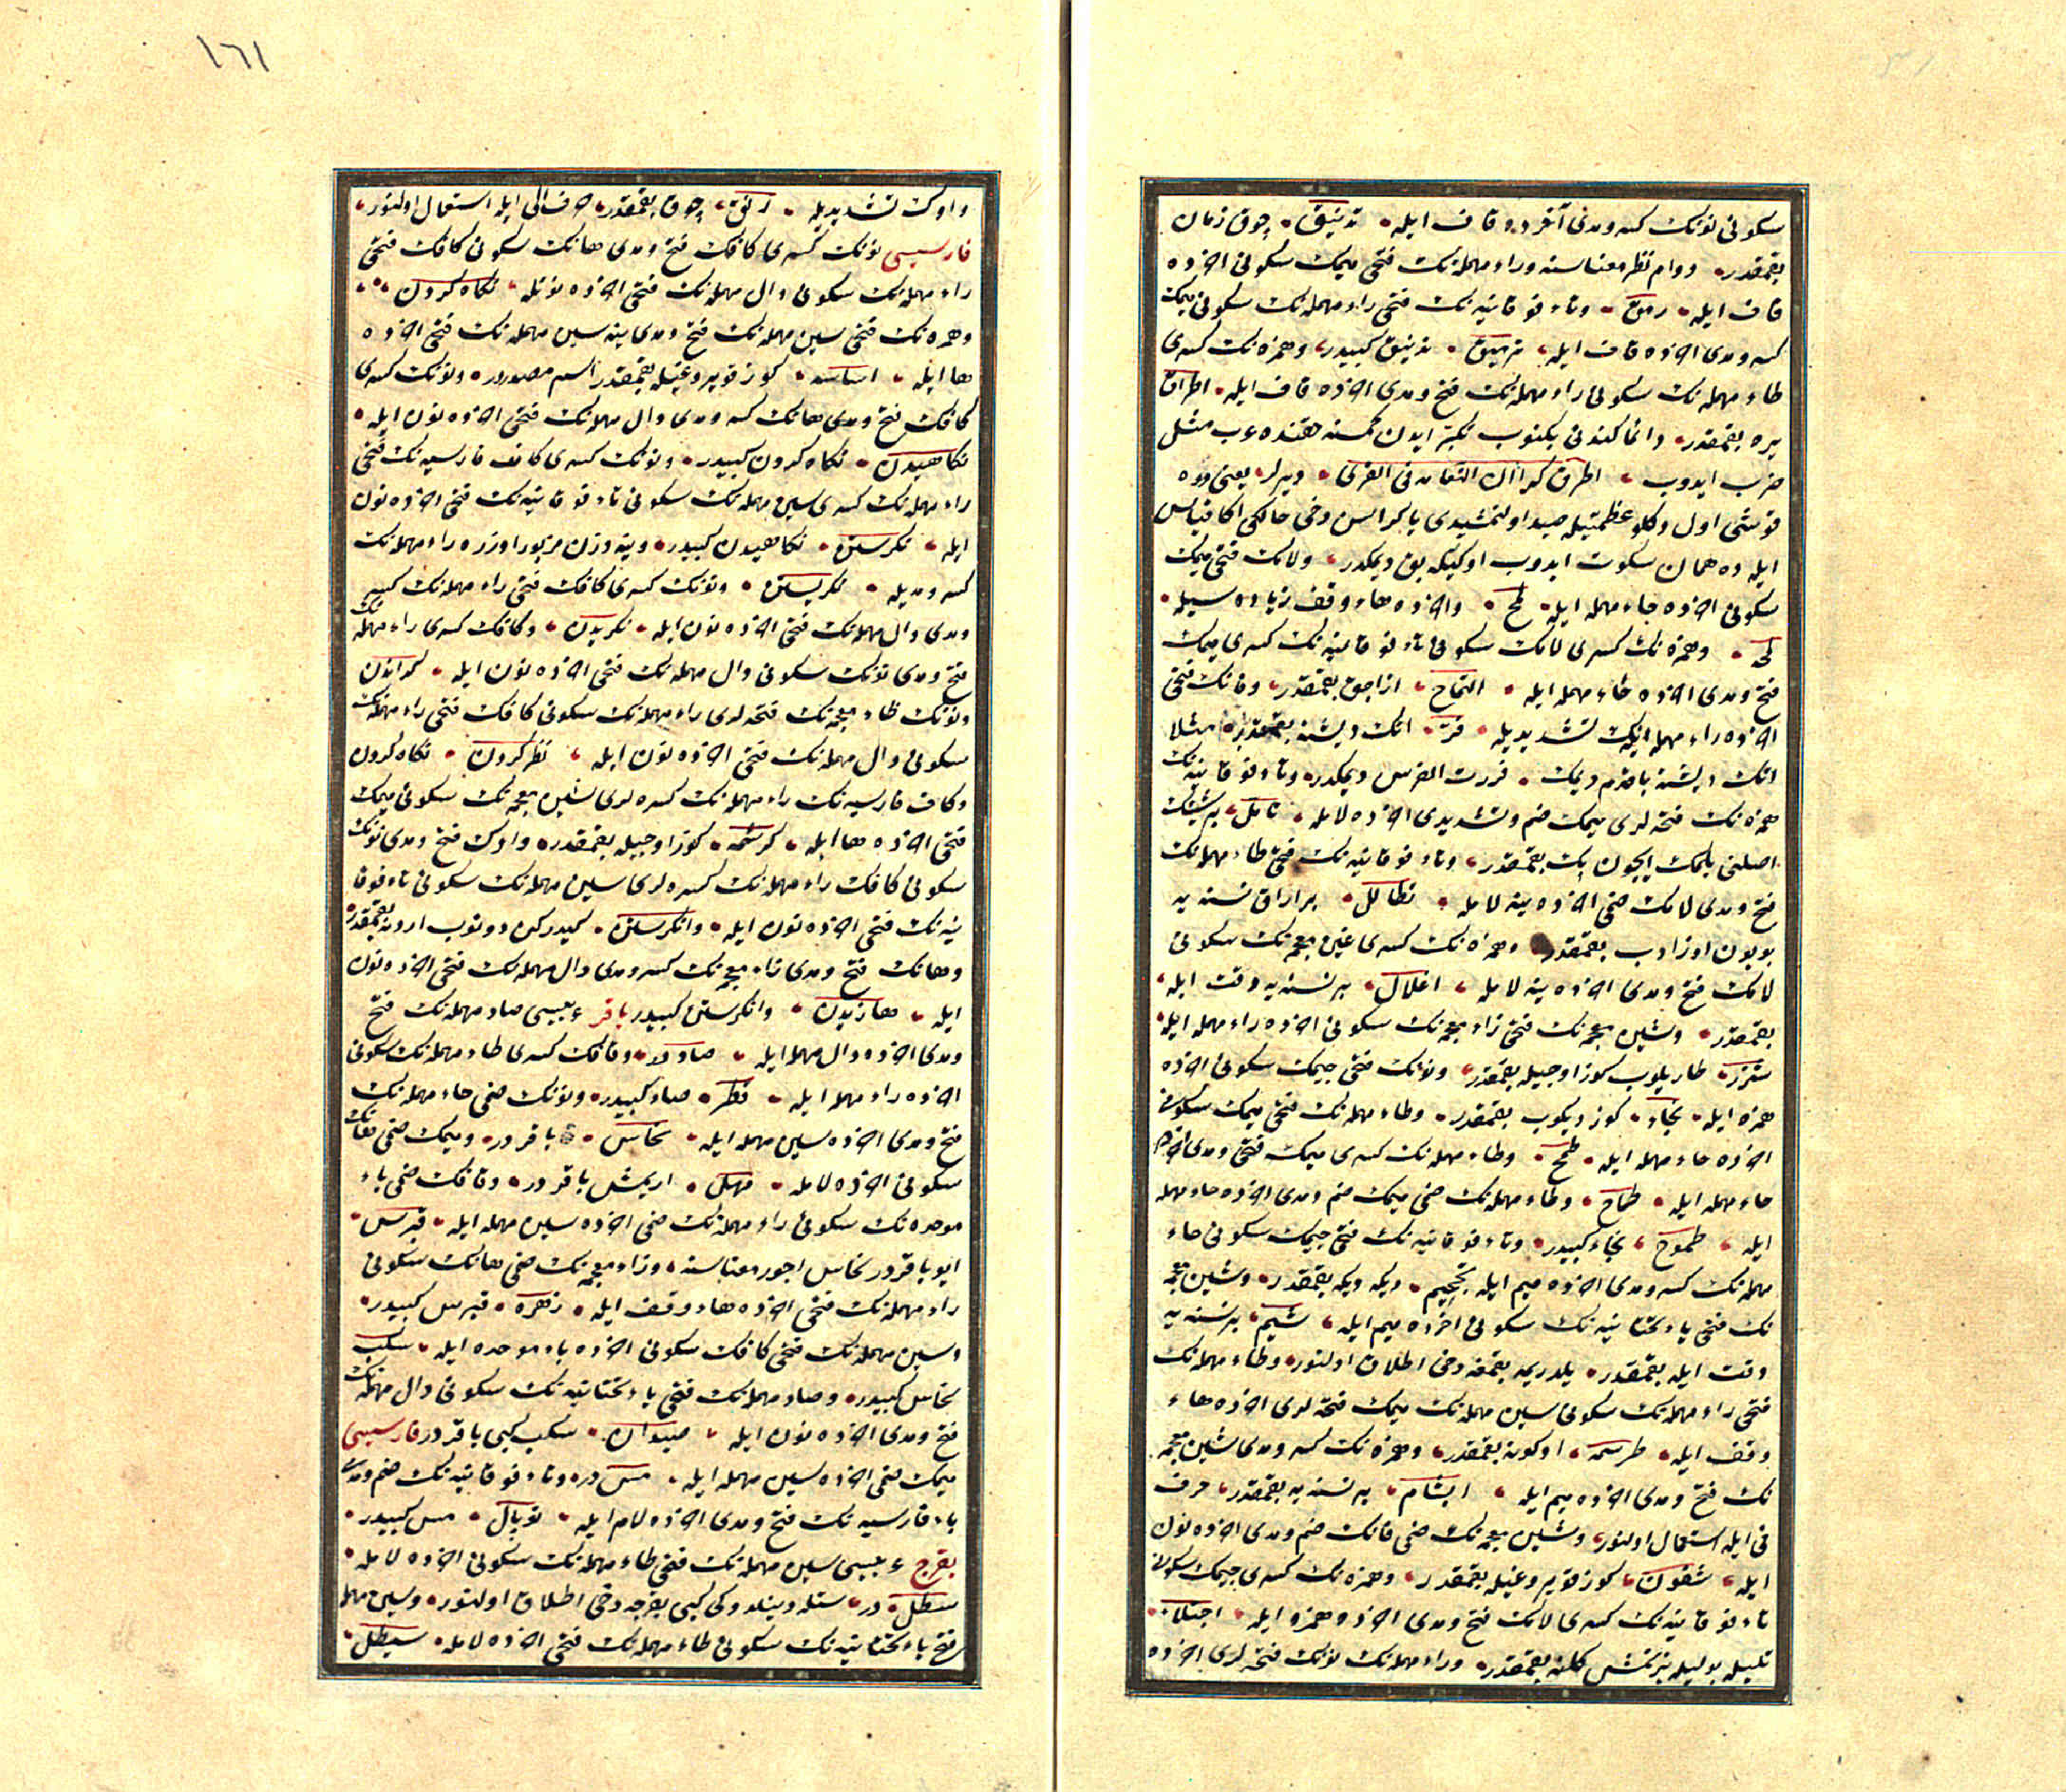 سكونى نونك كسر ومدى آخرده قاف ايله تدنيق چوق زمان
بقمقدر دوام نظر معناسنه وراء مهمله نك فتحى ميمك سكونى اخرده
قاف ايله رمق وتاء فوقانيه نك فتحى راء مهمله نك سكونى ميمك
كسر ومدى اخرده قاف ايله ترميق تدنيق كبيدر وهمزه نك كسرى
طاء مهمله نك سكونى راء مهمله نك فتح ومدى اخرده قاف ايله اطراق
يره بقمقدر دائما كندونى بكنوب تكبر ايدن كمسنه حقنده عرب مثل
ضرب ايدوب اطرق كرا ان النعامه فى القرى ديرلر يعنى دوه
قوشى اول دكلو عظمتيله صيد اولنمشيدى يا كراسن دخى حالكى اكا قياس
ايله ده همان سكوت ايدوب اوكيكه بق ديمكدر ولامك فتحى ميمك
سكونى اخرده حاء مهمله ايله لمح واخرده هاء وقف زياده سيله
لمحه وهمزه نك كسرى لامك سكونى تاء فوقانيه نك كسرى ميمك
فتح ومدى اخرده حاء مهمله ايله التماح ازاجق بقمقدر وفانك فتحى
اخرده راء مهمله ايكيك تشديديله فرّ انك ديشنه بقمقدر مثلا
انك ديشنه باقدم ديمك فررت الفرس ديمكدر وتاء فوقانيه نك
همزه نك فتحه لرى ميمك ضم وتشديدى اخرده لامله تأمل بر شيئك
اصلنى بلمك ايچون پك بقمقدر وتاء فوقانيه نك فتحى طاء مهمله نك
فتح ومدى لامك ضمى اخرده ينه لامله تطالل بر اراق نسنه يه
بويون اوزادب بقمقدر وهمزه نك كسرى غين معجمه نك سكونى
لامك فتح ومدى اخرده ينه لامله اغلال بر نسنه يه دقت ايله
بقمقدر وشين معجمه نك فتحى زاء معجمه نك سكونى اخرده راء مهمله ايله
شزر طاريلوب كوز اوجيله بقمقدر ونونك فتحى جيمك سكونى اخرده
همزه ايله نجاء كوز ديكوب بقمقدر وطاء مهمله نك فتحى ميمك سكونى
اخرده حاء مهمله ايله طمح وطاء مهمله نك كسرى ميمك فتحى ومدى اخرده
حاء مهمله ايله طماح وطاء مهمله نك ضمى ميمك ضم ومدى اخرده حاء مهمله
ايله طموح نجاء كبيدر وتاء فوقانيه نك فتحى جيمك سكونى حاء
مهمله نك كسر ومدى اخرده ميم ايله تجحيم ديكه ديكه بقمقدر وشين معجمه
نك فتحى ياء تحتانيه نك سكونى اخرده ميم ايله شيم بر نسنه يه
دقت ايله بقمقدر يلدريمه بقمغه دخى اطلاق اولنور وطاء مهمله نك
فتحى راء مهمله نك سكونى سين مهمله نك ميمك فتحه لرى اخرده هاء
وقف ايله طرسمه اوكونه بقمقدر وهمزه نك كسر ومدى شين معجمه
نك فتح ومدى اخرده ميم ايله ايشام بر نسنه يه بقمقدر حرف
فى ايله استعمال اولنور وشين معجمه نك ضمى فانك ضم ومدى اخرده نون
ايله شفون كوز قويروغيله بقمقدر وهمزه نك كسرى جيمك سكونى
تاء فوقانيه نك كسرى لامك فتح ومدى اخرده همزه ايله اجتلاء
تليله بوليله بزنمش كلنه بقمقدر وراء مهمله نك نونك فتحه لرى اخرده
١٦١
واوك تشديديله رنوّ چوق بقمقدر حرف الى ايله استعمال اولنور
فارسيسى نونك كسرى كافك فتح ومدى هانك سكونى كافك فتحى
راء مهمله نك سكونى دال مهمله نك فتحى اخرده نونله نكاه كردن
وهمزه نك فتحى سين مهمله نك فتح ومدى ينه سين مهمله نك فتحى اخرده
ها ايله اساسه كوز قويروغيله بقمقدر اسم مصدردر ونونك كسرى
كافك فتح ومدى هانك كسر ومدى دال مهمله نك فتحى اخرده نون ايله
نكاهيدن نكاه كردن كبيدر ونونك كسرى كاف فارسيه نك فتحى
راء مهمله نك كسرى سين مهمله نك سكونى تاء فوقانيه نك فتحى اخرده نون
ايله نكرستن نكاهيدن كبيدر وينه وزن مزبور اوزره راء مهمله نك
كسر ومديله نكريستن ونونك كسرى كافك فتحى راء مهمله نك كسر
ومدى دال مهمله نك فتحى اخرده نون ايله نكريدن وكافك كسرى راء مهمله نك
فتح ومدى نونك سكونى دال مهمله نك فتحى اخرده نون ايله كراندن
ونونك ظاء معجمه نك فتحه لرى راء مهمله نك سكونى كافك فتحى راء مهمله نك
سكونى دال مهمله نك فتحى اخرده نون ايله نظر كردن نكاه كردن
وكاف فارسيه نك راء مهمله نك كسره لرى شين معجمه نك سكونى ميمك
فتحى اخرده ها ايله كرشمه كوز اوجيله بقمقدر واوك فتح ومدى نونك
سكونى كافك راء مهمله نك كسره لرى سين مهمله نك سكونى تاء فوقا
نيه نك فتحى اخرده نون ايله وانكرستن كيدركن دونوب اردينه بقمقدر
وهانك فتح ومدى زاء معجمه نك كسر ومدى دال مهمله نك فتحى اخرده نون
ايله هازيدن وانكرستن كبيدر باقر عربيسى صاد مهمله نك فتح
ومدى اخرده دال مهمله ايله صاد در وقافك كسرى طاء مهمله نك سكونى
اخرده راء مهمله ايله قطر صاد كبيدر ونونك ضمى حاء مهمله نك
فتح ومدى اخرده سين مهمله ايله نحاس باقردر وميمك ضمى هانك
سكونى اخرده لامله مهل اريمش باقردر وقافك ضمى باء
موحده نك سكونى راء مهمله نك ضمى اخرده سين مهمله ايله قبرس
ايو باقردر نحاس اجود معناسنه وزاء معجمه نك ضمى هانك سكونى
راء مهمله نك فتحى اخرده هاء وقف ايله زهره قبرس كبيدر
وسين مهمله نك فتحى كافك سكونى اخرده باء موحده ايله سكب
نحاس كبيدر وصاد مهمله نك فتحى ياء تحتانيه نك سكونى دال مهمله نك
فتح ومدى اخرده نون ايله صيدان سكب كبى باقردر فارسيسى
ميمك ضمى اخرده سين مهمله ايله مس در وتاء فوقانيه نك ضم ومدى
باء فارسيه نك فتح ومدى اخرده لام ايله توپال مس كبيدر
بقرج عربيسى سين مهمله نك فتحى طاء مهمله نك سكونى اخرده لامله
سطل در ستله دينلدوكى كبى بقرجه دخى اطلاق اولنور وسين مهمله
فتح ياء تحتانيه نك سكونى طاء مهمله نك فتحى اخرده لامله سيطل